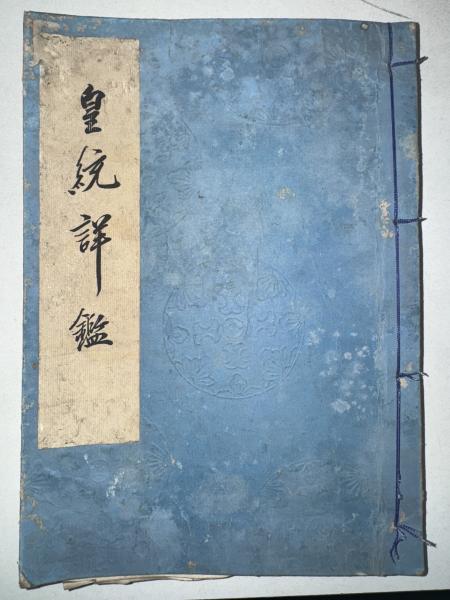 皇統詳鑑